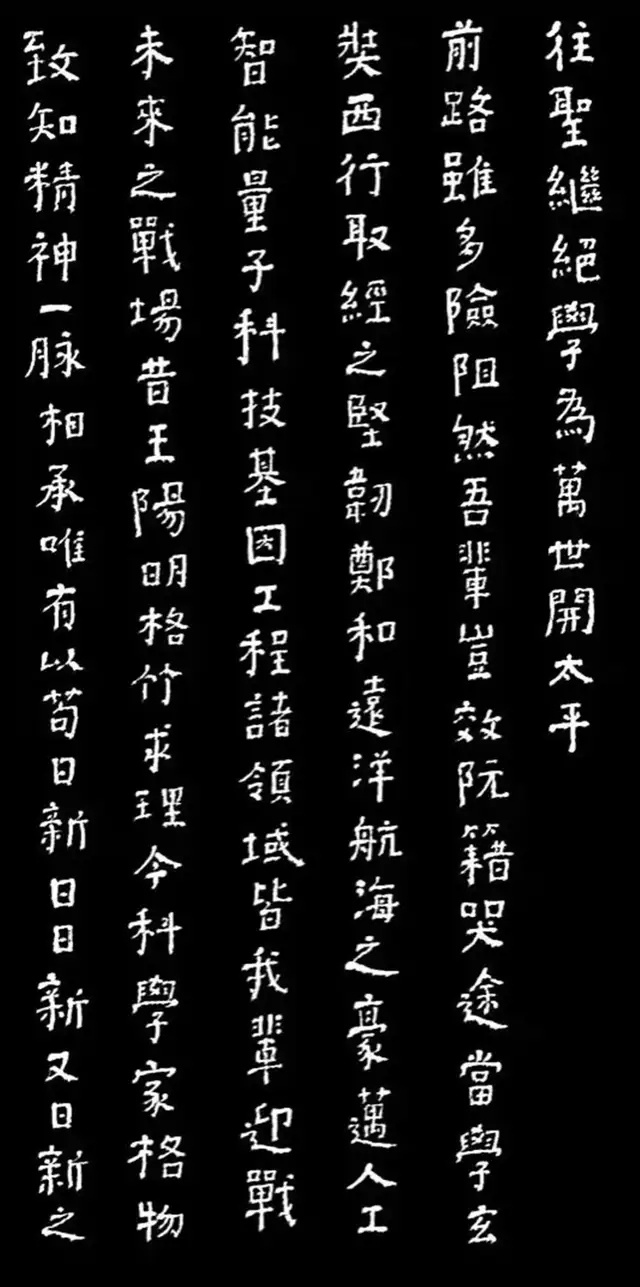 往聖繼絕學為萬世開太平
前路雖多險阻然吾輩豈效阮籍哭途當學玄
奘西行取經之堅韌鄭和遠洋航海之豪邁人工
智能量子科技基因工程諸領域皆我輩迎戰
未來之戰場昔王陽明格竹求理今科學家格物
致知精神一脉相承唯有以苟日新日日新又日新之